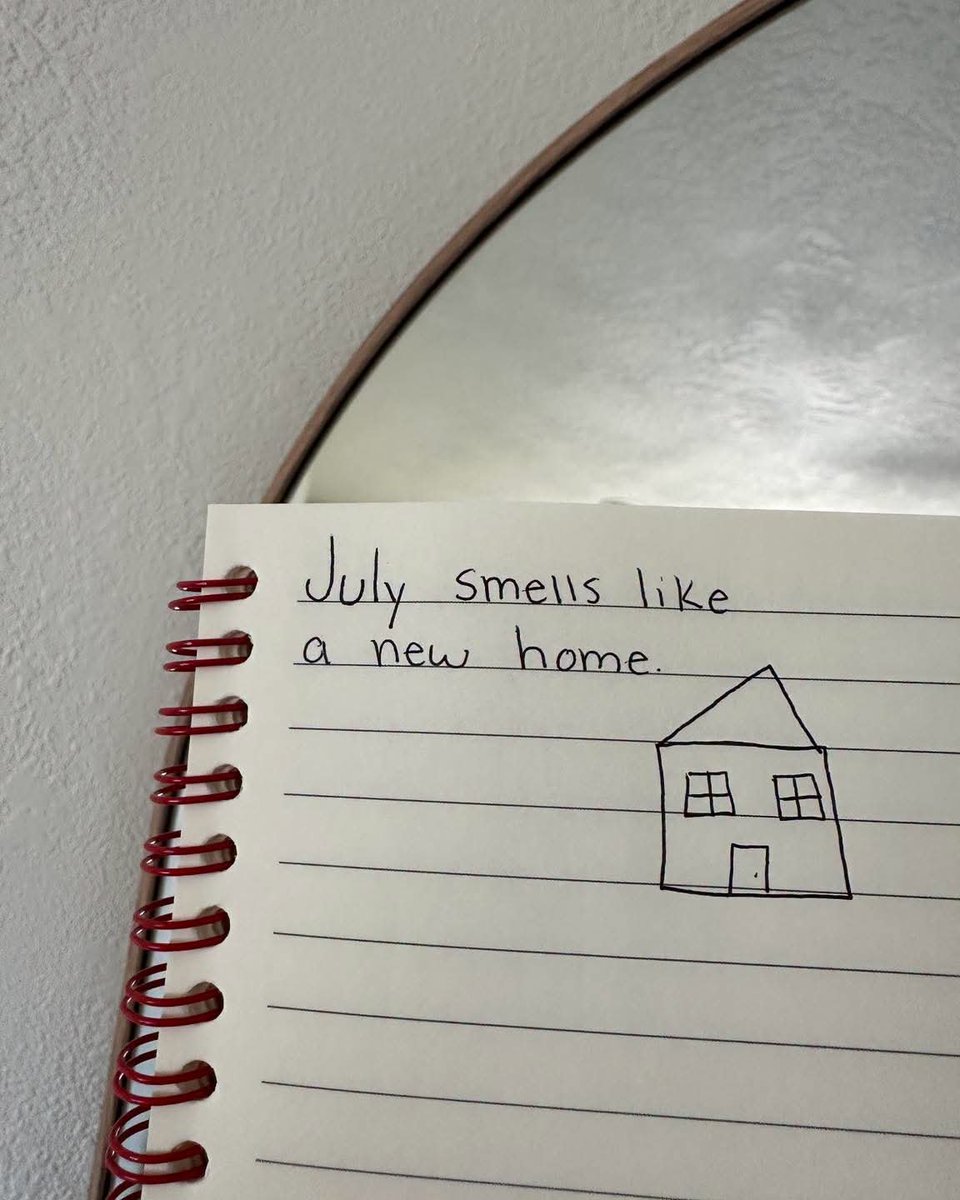 July smells like
a new home.